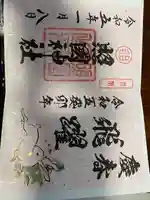 令和五年一月八日
照國神社
令和五癸卯年
飛躍
慶春